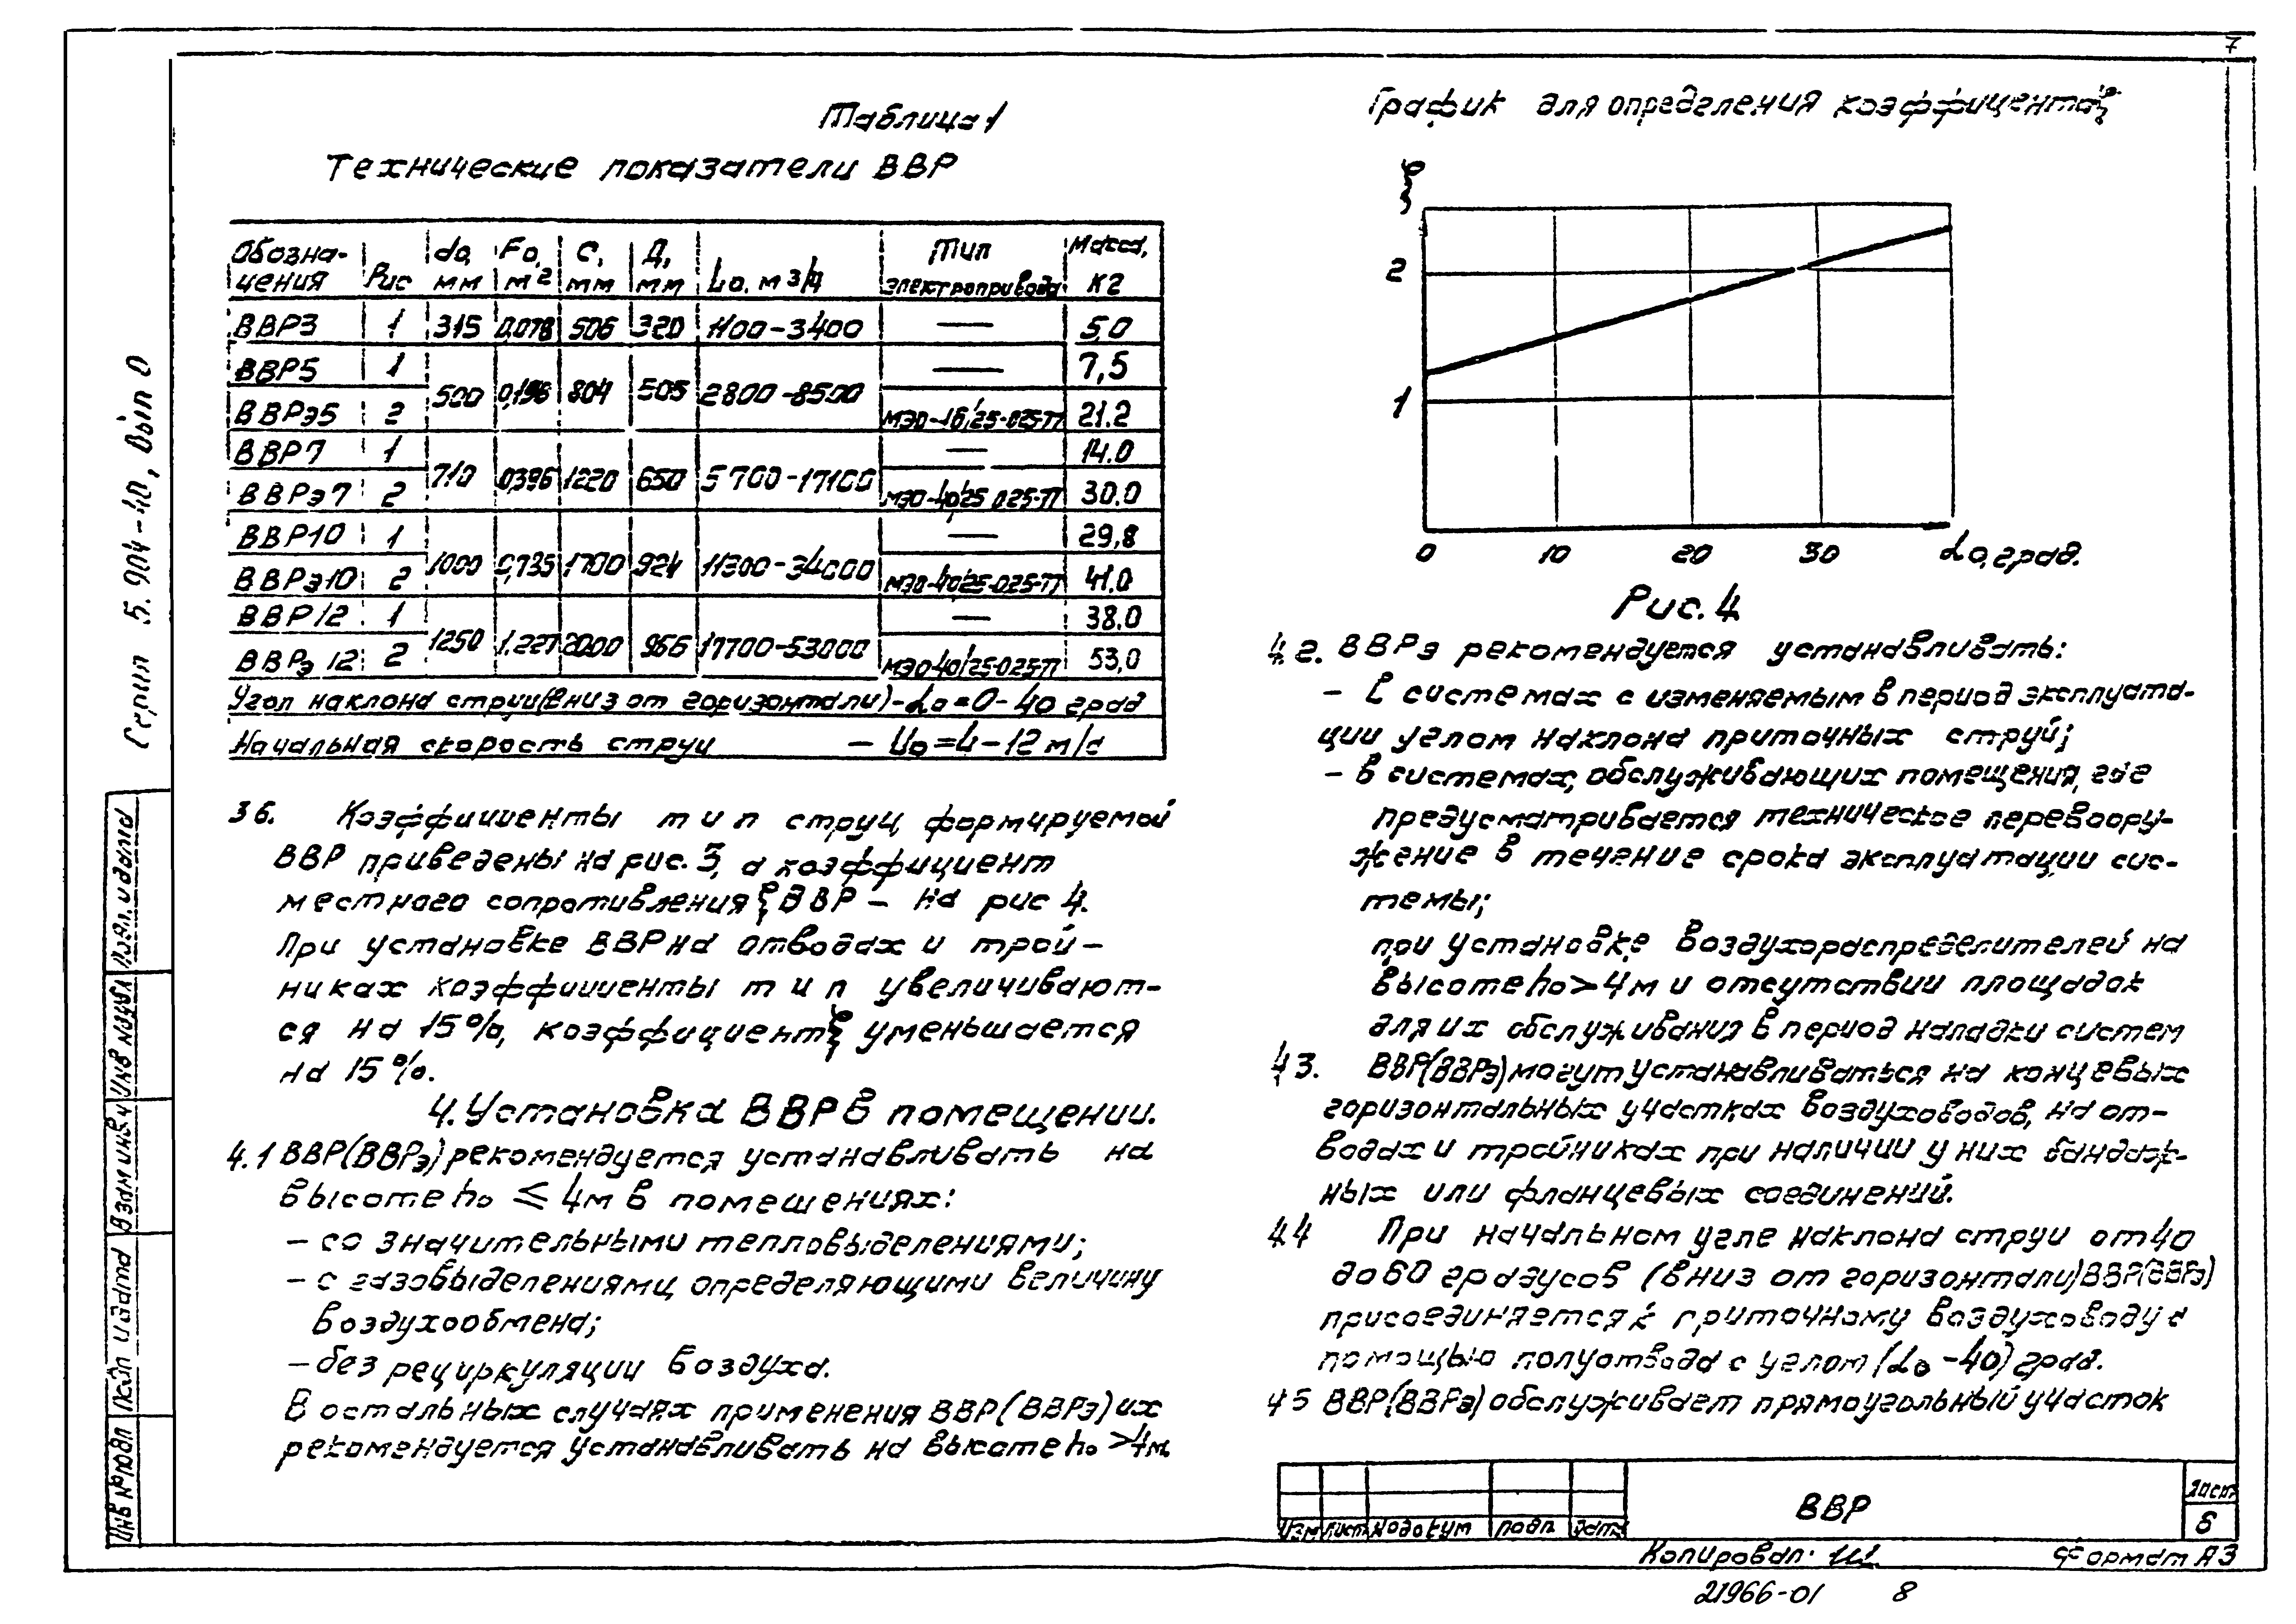 7
Таблица 1
Технические показатели ВВР
Обозна-чения | Рис | do, мм | Fo, м2 | С, мм | Д, мм | Lo, м3/ч | Тип электропривода | Масса, кг
ВВР3 | 1 | 315 | 0,078 | 506 | 320 | 1100-3400 | — | 5,0
ВВР5 | 1 | 500 | 0,196 | 804 | 505 | 2800-8500 | — | 7,5
ВВРэ5 | 2 | МЭО-16/25-0.25-77 | 21.2
ВВР7 | 1 | 710 | 0,396 | 1220 | 650 | 5700-17100 | — | 14.0
ВВРэ7 | 2 | МЭО-40/25 0.25-77 | 30.0
ВВР10 | 1 | 1000 | 0,735 | 1700 | 924 | 11300-34000 | — | 29,8
ВВРэ10 | 2 | МЭО-40/25-0.25-77 | 41.0
ВВР12 | 1 | 1250 | 1.227 | 2000 | 966 | 17700-53000 | — | 38.0
ВВРэ 12 | 2 | МЭО-40/25-0.25-77 | 53,0
Угол наклона струи(вниз от горизонтали)-αo=0-40 град
Начальная скорость струи — Uo=4-12 м/с
3 6. Коэффициенты m и n струи, формируемой
ВВР приведены на рис. 3, а коэффициент
местного сопротивления ξ ВВР - на рис 4.
При установке ВВР на отводах и трой-
никах коэффициенты m и n увеличивают-
ся на 15%, коэффициент ξ уменьшается
на 15%.
4. Установка ВВР в помещении.
4.1 ВВР(ВВРэ) рекомендуется устанавливать на
высоте ho ≤ 4м в помещениях:
- со значительными тепловыделениями;
- с газовыделениями, определяющими величину
воздухообмена;
- без рециркуляции воздуха.
В остальных случаях применения ВВР(ВВРэ) их
рекомендуется устанавливать на высоте ho >4м.
График для определения коэффицента ξ
ξ
2
1
0 10 20 30 αo, град.
Рис. 4
4.2. ВВРэ рекомендуется устанавливать:
- в системах с изменяемым в период эксплуата-
ции углом наклона приточных струй;
- в системах, обслуживающих помещения, где
предусматривается техническое перевоору-
жение в течение срока эксплуатации сис-
темы;
при установке воздухораспределителей на
высоте ho>4м и отсутствии площадок
для их обслуживания в период наладки систем
4 3. ВВР(ВВРэ) могут устанавливаться на концевых
горизонтальных участках воздуховодов, на от-
водах и тройниках при наличии у них бандаж-
ных или фланцевых соединений.
4.4 При начальном угле наклона струи от 40
до 60 градусов (вниз от горизонтали) ВВР(ВВРэ)
присоединяется к приточному воздуховоду с
помощью полуотвода с углом (αo -40) град.
4 5 ВВР(ВВРэ) обслуживает прямоугольный участок
Изм Лист № докум подп дата
ВВР
Лист
6
Копировал:
Формат А3
21966-01 8
Серия 5.904-40, вып 0
Подп. и дата
Инв № дубл
Взам инв №
Подп и дата
Инв № подл